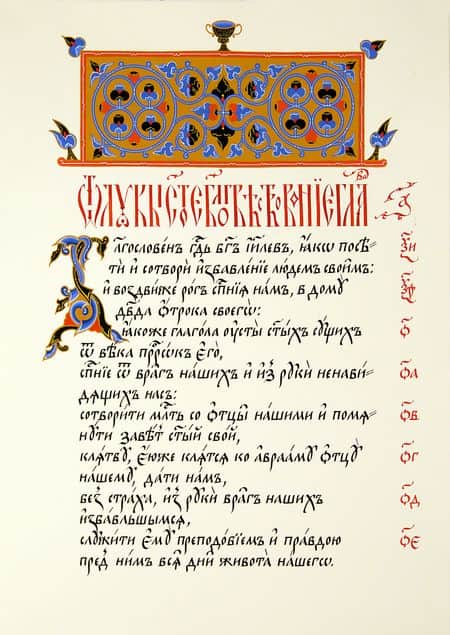 Ѿ лꙋкѝ ст҃о́е бл҃говѣствова́нїе гл҃ва̀ а҃
Бл҃гослове́нъ гд҃ь бг҃ъ і҆и҃левъ, ꙗ҆́кѡ посѣ= ѯ҃и
тѝ и҆ сотворѝ и҆збавле́нїе лю́демъ свои̑мъ:
и҆ воздви́же ро́гъ сп҃нїѧ на́мъ, въ домꙋ̀ ѯ҃ѳ
дв҃да ѻ҆́трока своегѡ̀:
ꙗ҆́коже глаго́ла ᲂу҆сты̀ ст҃ы́хъ сꙋ́щихъ ѻ҃
ѿ вѣ́ка прⷪ҇рѡ́къ є҆гѡ̀,
сп҃нїе ѿ вра̑гъ на́шихъ и҆ и҆з̾ рꙋкѝ ненави́= ѻ҃а
дѧщихъ на́съ:
сотвори́ти млⷭ҇ть со ѻ҆тцы̑ на́шими и҆ помѧ= ѻ҃в
нꙋ́ти завѣ́тъ ст҃ы́й сво́й,
клѧ́твꙋ, є҆́юже клѧ́тсѧ ко а҆враа́мꙋ ѻ҆тцꙋ̀ ѻ҃г
на́шемꙋ, да́ти на́мъ,
без̾ стра́ха, и҆з̾ рꙋкѝ вра̑гъ на́шихъ ѻ҃д
и҆зба́вльшымсѧ,
слꙋжи́ти є҆мꙋ̀ преподо́бїемъ и҆ пра́вдою ѻ҃е
пред̾ ни́мъ всѧ̑ дни̑ живота̀ на́шегѡ.